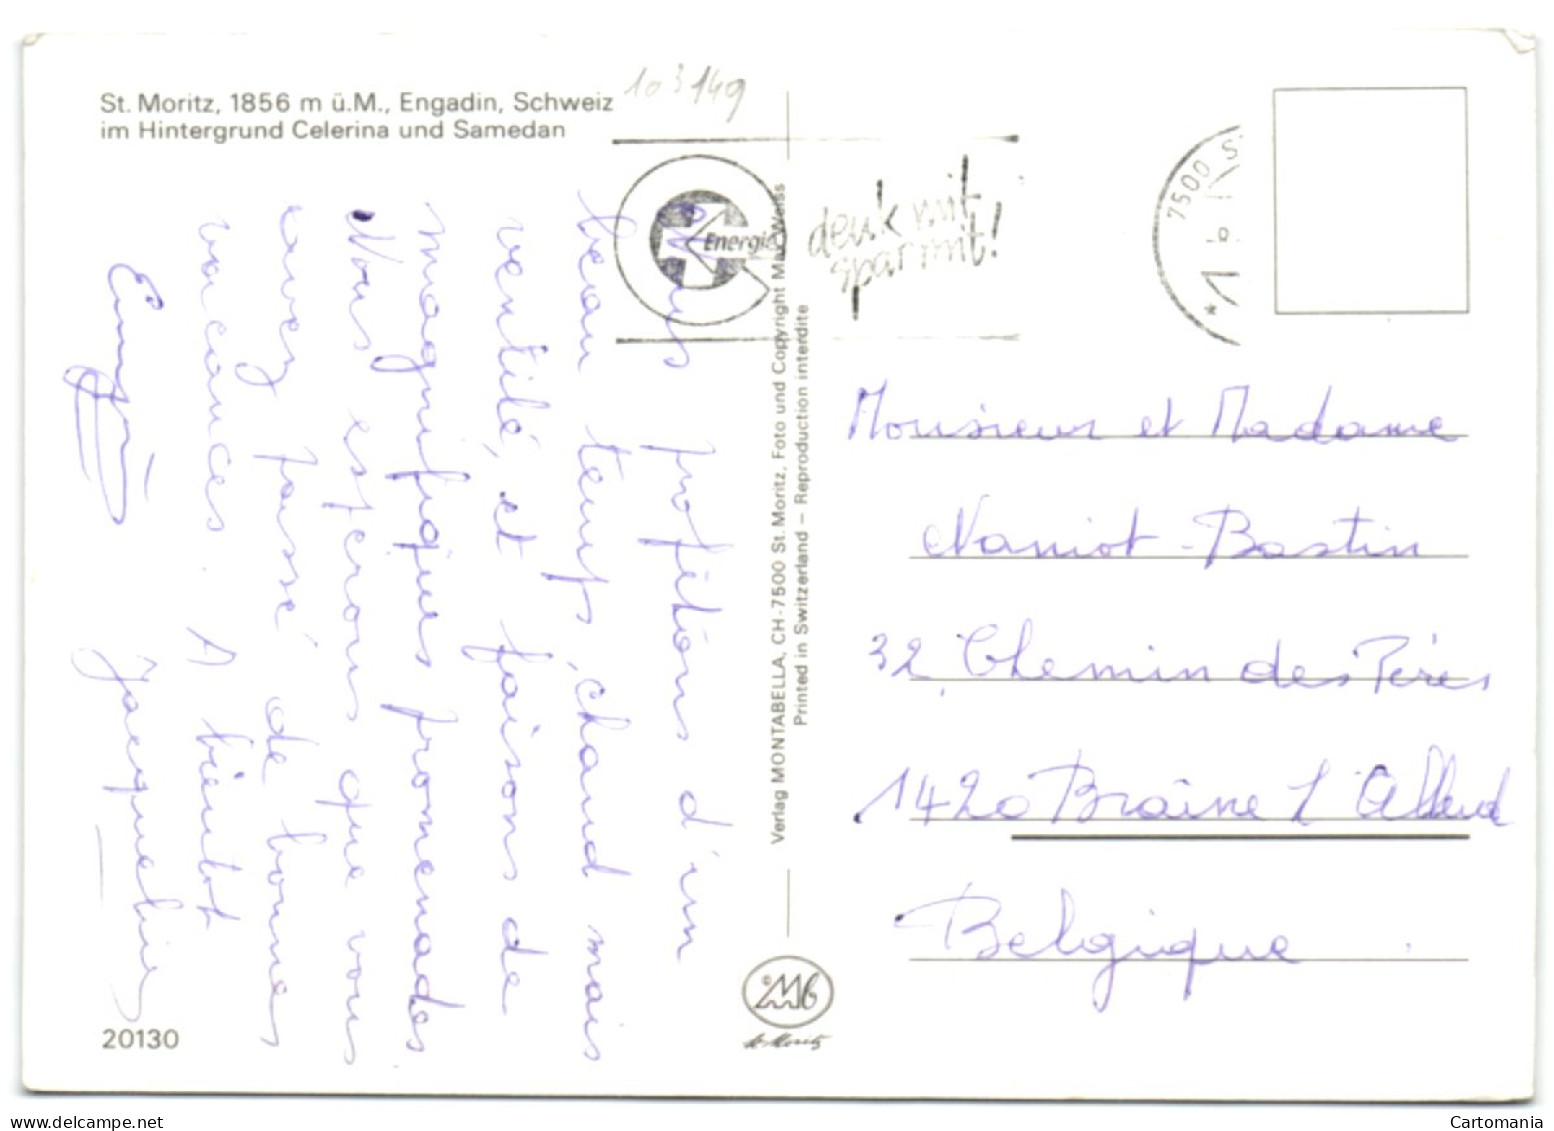 St. Moritz, 1856 m ü.M., Engadin, Schweiz
im Hintergrund Celerina und Samedan
103149
Energie
denk mit
spar mit!
7500 S
Nous profitons d'un
beau temps, chaud mais
ventilé, et faisons de
magnifiques promenades
Nous espérons que vous
avez passé de bonnes
vacances. A bientôt
Jacqueline
Verlag MONTABELLA, CH-7500 St. Moritz, Foto und Copyright Max Weiss
Printed in Switzerland – Reproduction interdite
Monsieur et Madame
Naniot-Bastin
32, Chemin des Pères
1420 Braine L'Alleud
Belgique
20130
©Mb
St. Moritz
delcampe.net
Cartomania